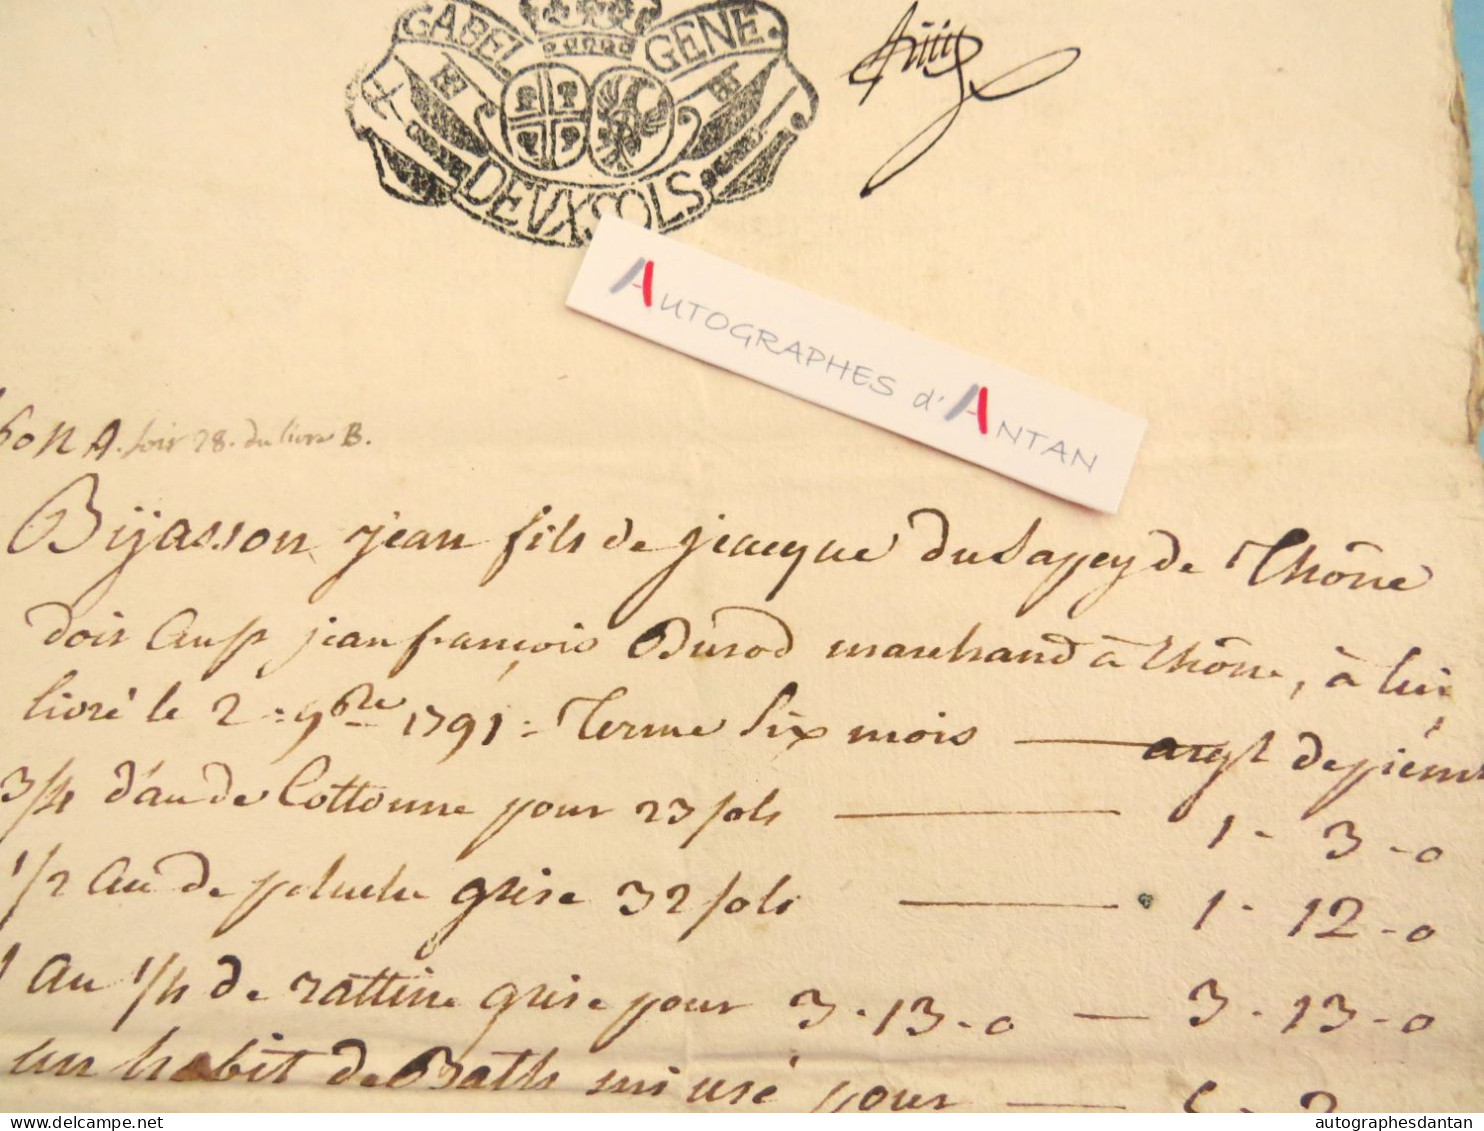 GABEL GENE.
DEVX SOLS
AUTOGRAPHES d'ANTAN
A. soir 28. du livre B.
Bijasson jean fils de jacque du Sapey de Thône
doit au sr jean françois Durod marchand à Thône, à lui
livré le 2 = 9bre 1791 = Terme six mois — argt de piémt
3/4 d'au de Cottonne pour 23 sols — 1 - 3 - 0
1/2 au de peluche grise 32 sols — 1 - 12 - 0
1 au 1/4 de rattine grise pour 3 - 13 - 0 — 3 - 13 - 0
un habit de Bath mi usé pour —
autographesdantan